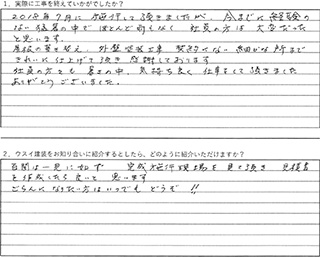 1、実際に工事を終えていかがでしたか？
2018年7月に施行して頂きましたが、今までに経験の
ない猛暑の中でほとんど雨もなく 社員の方は大変だった
と思います。
屋根の葺き替え、外壁塗装工事 細かな所まで
きれいに仕上げて頂き感謝しております
社員の方々も暑さの中、気持ち良く仕事をして頂きました
ありがとうございました。
2、ウスイ建装をお知り合いに紹介するとしたら、どのように紹介いただけますか？
百聞は一見に如ず 完成施行現場を見て頂き 見積書
を作成したら良いと思います
ごらんになりたい方はいつでもどうぞ!!